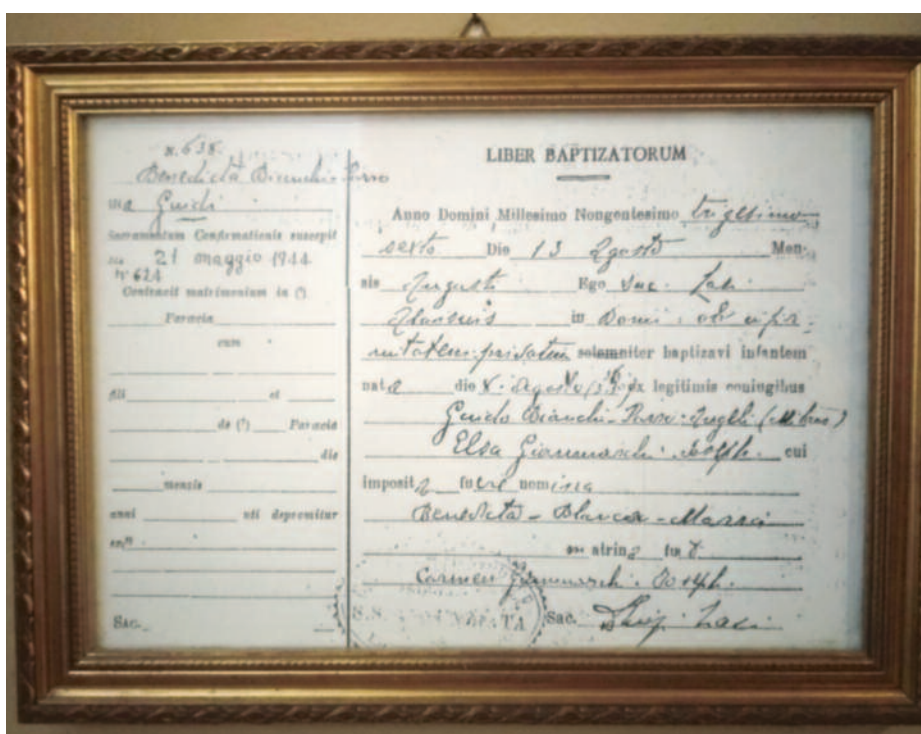 N. 638.
Benedicta Bianchi Porro
lia Guidi
Sacramentum Confirmationis suscepit
die 21 maggio 1944
N° 624
Contraxit matrimonium in (¹)
Paroecia
cum
fili et
de (¹) Paroecia
die
mensis
anni uti depromitur
ex
Sac.
LIBER BAPTIZATORUM
Anno Domini Millesimo Nongentesimo trigesimo
sexto Die 13 Agosto Men-
sis Augusti Ego Sac.
in Domi ob infir-
mitatem solemniter baptizavi infantem
nata die 8 Agosto ex legitimis coniugibus
Guido Bianchi-Porro
Elsa Giammarchi Joseph. cui
imposita fuere nomina
Benedicta - Blanca - Maria
matrina fuit
Carmen Giammarchi Joseph.
S.S. Sac. Luigi